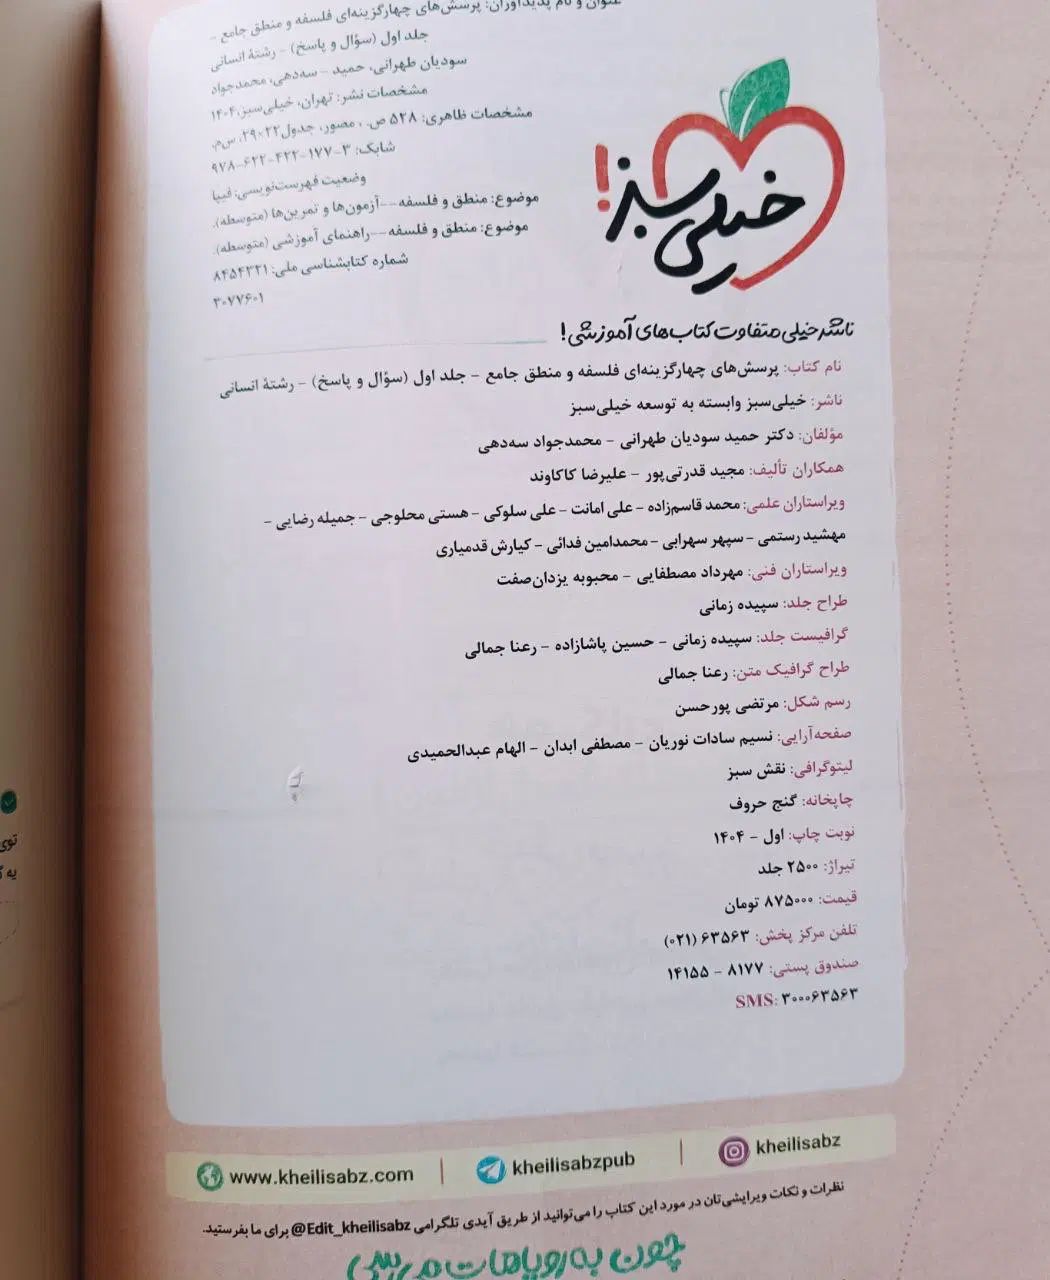 عنوان و نام پدیدآوران: پرسش‌های چهارگزینه‌ای فلسفه و منطق جامع -
جلد اول (سؤال و پاسخ) - رشتهٔ انسانی
سودیان طهرانی، حمید - سه‌دهی، محمدجواد
مشخصات نشر: تهران، خیلی‌سبز، ۱۴۰۴
مشخصات ظاهری: ۵۲۸ ص. ، مصور، جدول ۲۲×۲۹، س‌م.
شابک: ۳-۱۷۷-۴۲۲-۶۲۲-۹۷۸
وضعیت فهرست‌نویسی: فیپا
موضوع: منطق و فلسفه--آزمون‌ها و تمرین‌ها (متوسطه).
موضوع: منطق و فلسفه--راهنمای آموزشی (متوسطه).
شماره کتابشناسی ملی: ۸۴۵۴۳۳۱
۳۰۷۷۶۰۱
خیلی سبز!
ناشر خیلی متفاوت کتاب‌های آموزشی!
نام کتاب: پرسش‌های چهارگزینه‌ای فلسفه و منطق جامع - جلد اول (سؤال و پاسخ) - رشتهٔ انسانی
ناشر: خیلی‌سبز وابسته به توسعه خیلی‌سبز
مؤلفان: دکتر حمید سودیان طهرانی - محمدجواد سه‌دهی
همکاران تألیف: مجید قدرتی‌پور - علیرضا کاکاوند
ویراستاران علمی: محمد قاسم‌زاده - علی امانت - علی سلوکی - هستی محلوجی - جمیله رضایی -
مهشید رستمی - سپهر سهرابی - محمدامین فدائی - کیارش قدمیاری
ویراستاران فنی: مهرداد مصطفایی - محبوبه یزدان‌صفت
طراح جلد: سپیده زمانی
گرافیست جلد: سپیده زمانی - حسین پاشازاده - رعنا جمالی
طراح گرافیک متن: رعنا جمالی
رسم شکل: مرتضی پورحسن
صفحه‌آرایی: نسیم سادات نوریان - مصطفی ابدان - الهام عبدالحمیدی
لیتوگرافی: نقش سبز
چاپخانه: گنج حروف
نوبت چاپ: اول - ۱۴۰۴
تیراژ: ۲۵۰۰ جلد
قیمت: ۸۷۵۰۰۰ تومان
تلفن مرکز پخش: ۶۳۵۶۳ (۰۲۱)
صندوق پستی: ۸۱۷۷ - ۱۴۱۵۵
SMS: ۳۰۰۰۶۳۵۶۳
www.kheilisabz.com | kheilisabzpub | kheilisabz
نظرات و نکات ویرایشی‌تان در مورد این کتاب را می‌توانید از طریق آیدی تلگرامی @Edit_kheilisabz برای ما بفرستید.
چون به رویاهات می‌رسی
توی
یه